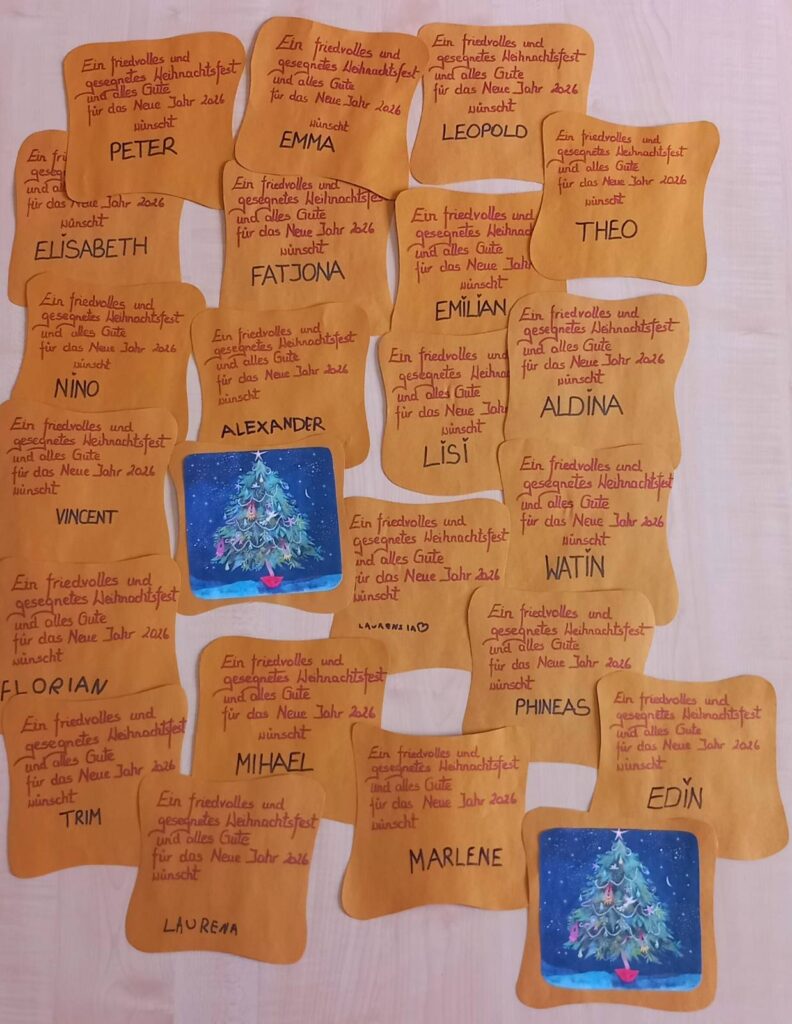 Ein friedvolles und
gesegnetes Weihnachtsfest
und alles Gute
für das Neue Jahr 2026
wünscht
PETER
Ein friedvolles und
gesegnetes Weihnachtsfest
und alles Gute
für das Neue Jahr 2026
wünscht
EMMA
Ein friedvolles und
gesegnetes Weihnachtsfest
und alles Gute
für das Neue Jahr 2026
wünscht
LEOPOLD
Ein friedvolles und
gesegnetes Weihnachtsfest
und alles Gute
für das Neue Jahr 2026
wünscht
THEO
Ein
gese
und a
für das Neue Jahr 2026
wünscht
ELISABETH
Ein friedvolles und
gesegnetes Weihnachtsfes
und alles Gute
für das Neue Jahr 2026
wünscht
FATJONA
Ein friedvolles und
gesegnetes Weihnac
und alles Gute
für das Neue Jahr
wünscht
EMILIAN
Ein friedvolles und
gesegnetes Weihnachtsfest
und alles Gute
für das Neue Jahr 2026
wünscht
NINO
Ein friedvolles und
gesegnetes Weihnachtsfest
und alles Gute
für das Neue Jahr 2026
wünscht
ALEXANDER
Ein friedvolles und
gesegnetes Weihna
und alles Gute
für das Neue Jah
wünscht
LISI
Ein friedvolles und
gesegnetes Weihnachtsfest
und alles Gute
für das Neue Jahr 2026
wünscht
ALDINA
Ein friedvolles und
gesegnetes Weihnachtsfest
und alles Gute
für das Neue Jahr 2026
wünscht
VINCENT
Ein friedvolles und
gesegnetes Weihnachtsfest
und alles Gute
für das Neue Jahr 2026
wünscht
LAURENZIA♡
Ein friedvolles und
gesegnetes Weihnachtsfest
und alles Gute
für das Neue Jahr 2026
wünscht
WATIN
Ein friedvolles und
gesegnetes Weihnachtsfest
und alles Gute
für das Neue Jahr 2026
wünscht
FLORIAN
Ein friedvolles und
gesegnetes Weihnachtsfest
und alles Gute
für das Neue Jahr 2026
wünscht
MIHAEL
Ein friedvolles und
gesegnetes Weihnachtsfest
und alles Gute
für das Neue Jahr 2026
wünscht
PHINEAS
Ein friedvolles und
gesegnetes Weihnachtsfest
und alles Gute
für das Neue Jahr 2026
wünscht
EDIN
Ein friedvolles und
gesegnetes Weihnachtsfest
und alles Gute
für das Neue Jahr 2026
wünscht
TRIM
Ein friedvolles und
gesegnetes Weihnachtsfest
und alles Gute
für das Neue Jahr 2026
wünscht
LAURENA
Ein friedvolles und
gesegnetes Weihnachtsfest
und alles Gute
für das Neue Jahr 2026
wünscht
MARLENE